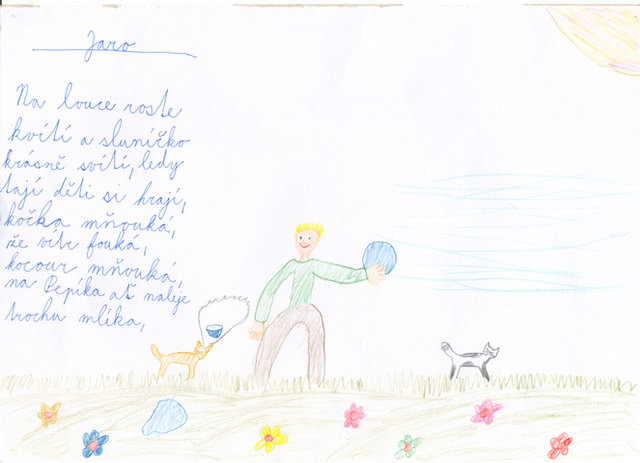 Jaro
Na louce roste
kvítí a sluníčko
krásně svítí, ledy
tají děti si hrají,
kočka mňouká,
že vítr fouká,
kocour mňouká,
na Pepíka ať nalije
trochu mlíka,